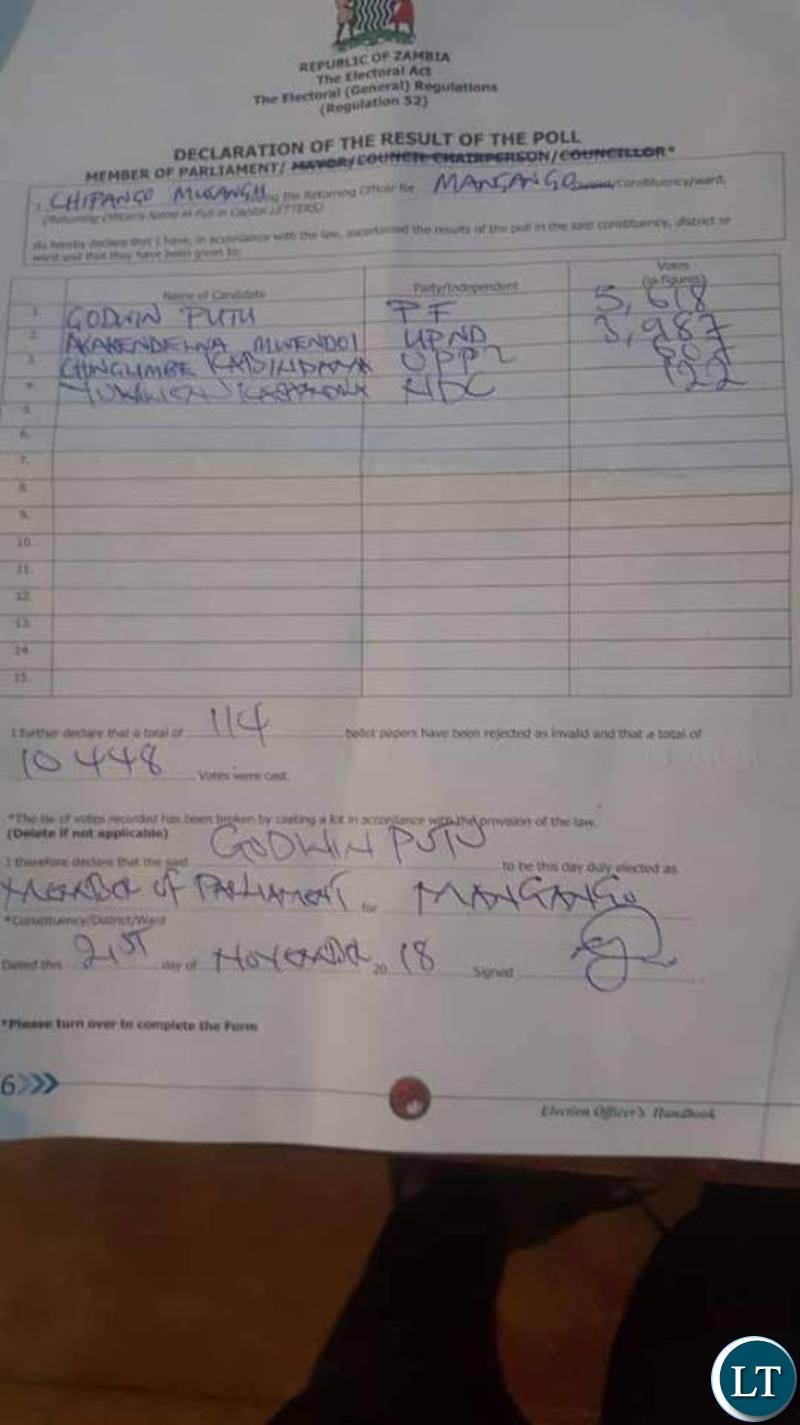 REPUBLIC OF ZAMBIA
The Electoral Act
The Electoral (General) Regulations
(Regulation 52)
DECLARATION OF THE RESULT OF THE POLL
MEMBER OF PARLIAMENT/ MAYOR/COUNCIL CHAIRPERSON/COUNCILLOR*
I, CHIPANGO being the Returning Officer for MANGANGO /Constituency/ward,
(Returning Officer's Name in Full in Capital LETTERS)
do hereby declare that I have, in accordance with the law, ascertained the results of the poll in the said constituency, district or
ward and that they have been given to:
Name of Candidate Party/Independent Votes (in figures)
1. GODWIN PUTU PF 5,618
2. AKAKENDELWA MWENDOI UPND 3,987
3. CHINGUMBE UPPZ 607
4. NDC 122
5.
6.
7.
8.
9.
10.
11.
12.
13.
14.
15.
I further declare that a total of 114 ballot papers have been rejected as invalid and that a total of
10448 Votes were cast.
*The tie of votes recorded has been broken by casting a lot in accordance with the provision of the law.
(Delete if not applicable)
I therefore declare that the said GODWIN PUTU to be this day duly elected as
MEMBER OF PARLIAMENT for MANGANGO
*Constituency/District/Ward
Dated this 21ST day of NOVEMBER 20 18 Signed
*Please turn over to complete the Form
6
Election Officer's Handbook
LT